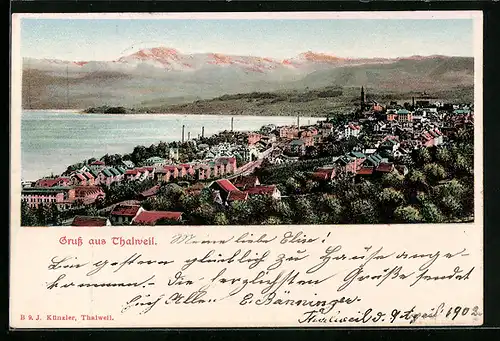 Gruß aus Thalweil.
Meine liebe Elise!
Bin gestern glücklich zu Hause ange-
kommen. - Die herzlichsten Grüße sendet
Euch Allen E. Bänninger
Thalweil d. 9 April 1902.
B 9. J. Künzler, Thalweil.